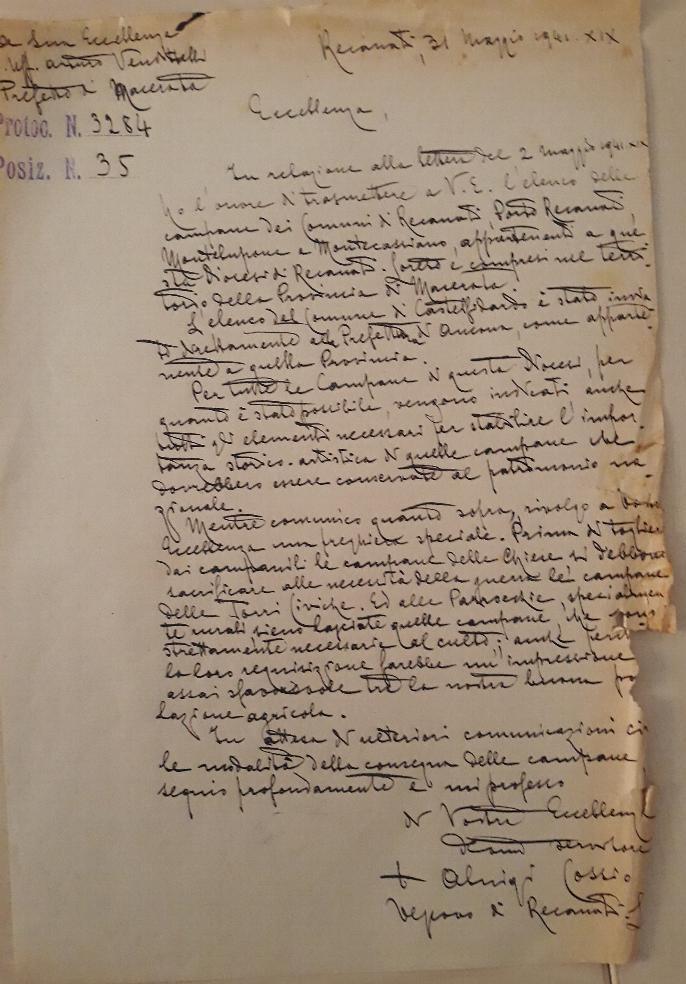 A Sua Eccellenza
Uff. Arturo Vendittelli
Prefetto di Macerata
Protoc. N. 3284
Posiz. N. 35
Recanati, 31 Maggio 1941. XIX
Eccellenza,
In relazione alla lettera del 2 maggio 1941. XIX
ho l'onore di trasmettere a V. E. l'elenco delle
campane dei Comuni di Recanati, Porto Recanati
Montelupone e Montecassiano, appartenenti a que
sta Diocesi di Recanati-Loreto e compresi nel terri-
torio della Provincia di Macerata.
L'elenco del Comune di Castelfidardo è stato invia
to direttamente alla Prefettura di Ancona, come apparte-
nente a quella Provincia.
Per tutte le Campane di questa Diocesi, per
quanto è stato possibile, vengono indicati anche
tutti gli elementi necessari per stabilire l'impor-
tanza storico-artistica di quelle campane che
dovrebbero essere conservate al patrimonio na-
zionale.
Mentre comunico quanto sopra, rivolgo a Vostra
Eccellenza una preghiera speciale. Prima di togliere
dai campanili le campane delle Chiese si debbono
sacrificare alle necessità della guerra le campane
delle Torri Civiche. Ed alle Parrocchie, specialmen
te rurali sieno lasciate quelle campane, che sono
strettamente necessarie al culto; anche perché
la loro requisizione farebbe un'impressione
assai sfavorevole tra la nostra buona po
lazione agricola.
In attesa di ulteriori comunicazioni ci
le modalità della consegna delle campane
seguio profondamente e mi professo
di Vostra Eccellenza
servitore
+ Aluigi Cossio
Vescovo di Recanati-L